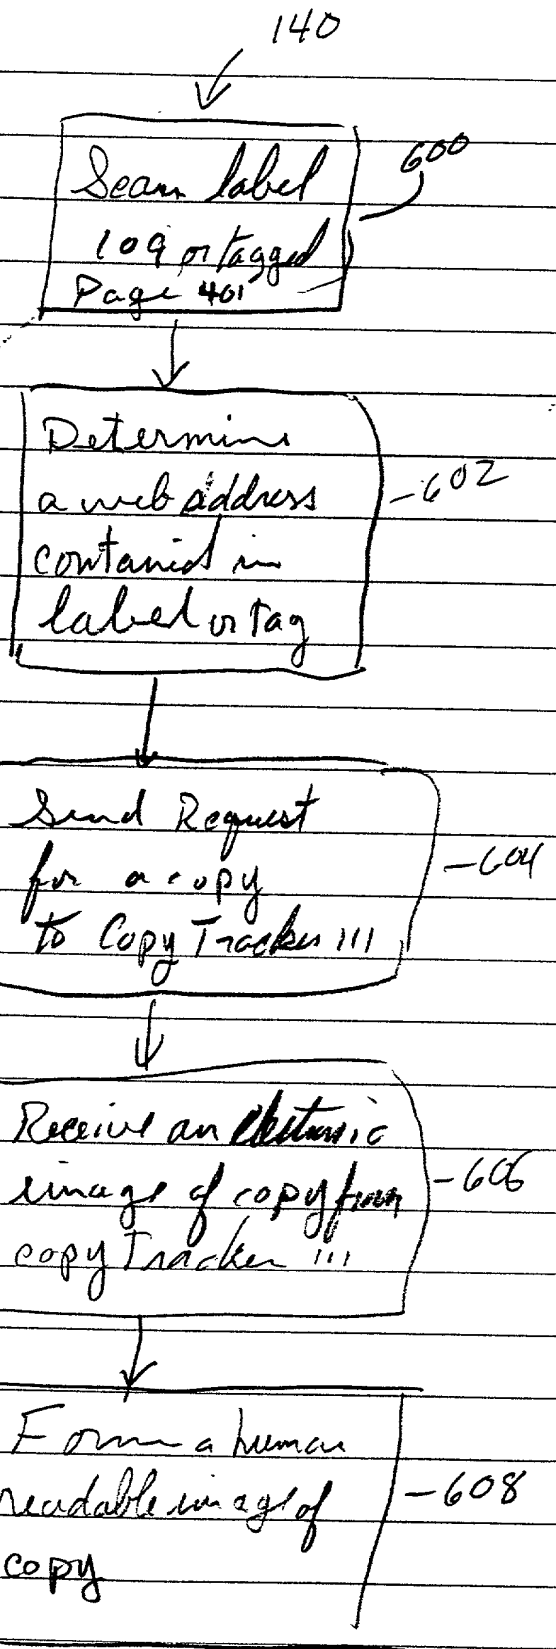 140
Scan label
109 or tagged
Page 401
600
Determine
a web address
contained in
label or tag
602
Send Request
for a copy
to Copy Tracker 111
604
Receive an electronic
image of copy from
copy Tracker 111
606
Form a human
readable image of
copy
608